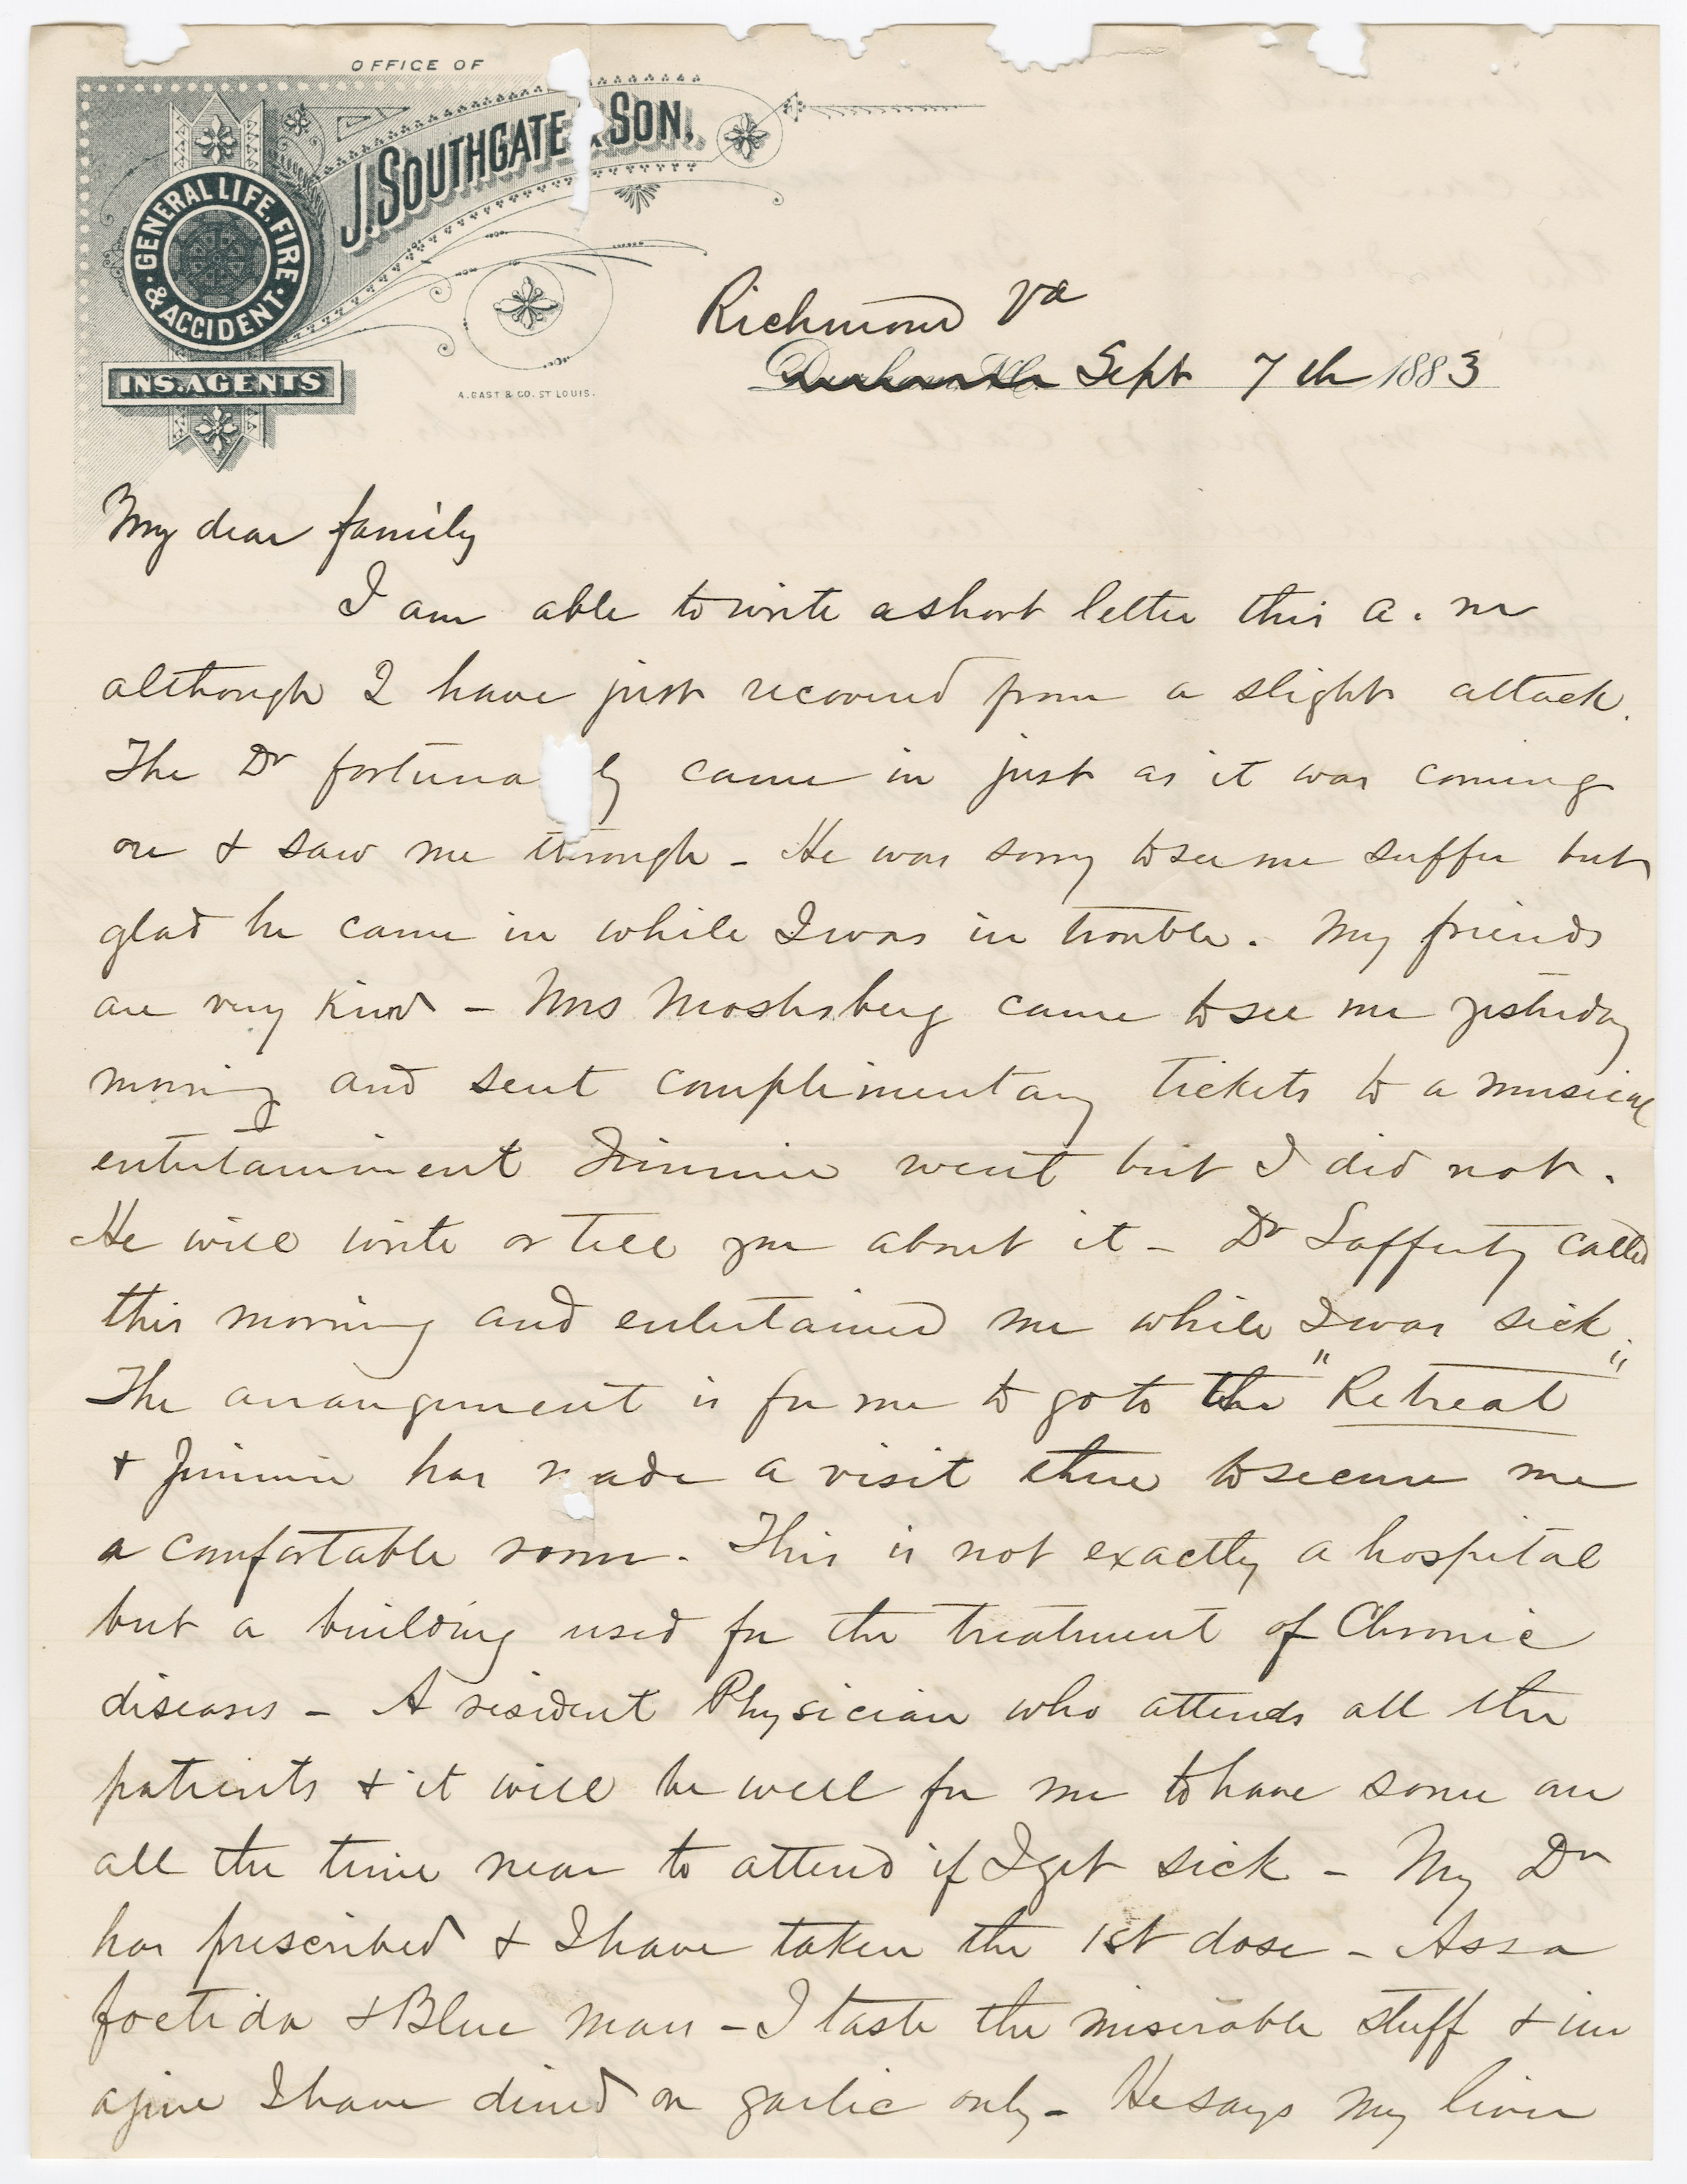 OFFICE OF
J. SOUTHGATE & SON.
GENERAL LIFE, FIRE
& ACCIDENT
INS. AGENTS
A. GAST & CO. ST LOUIS.
Richmond Va
Sept 7th 1883
My dear family
I am able to write a short letter this a.m
although I have just recovered from a slight attack.
The Dr fortuna ly came in just as it was coming
on & saw me through - He was sorry to see me suffer but
glad he came in while I was in trouble. My friends
are very kind - Mrs came to see me yesterday
morning and sent complimentary tickets to a musical
entertainment Jimmie went but I did not.
He will write or tell you about it - Dr Lafferty called
this morning and entertained me while I was sick.
The arrangement is for me to go to the "Retreat"
& Jimmie has made a visit there to secure me
a comfortable room. This is not exactly a hospital
but a building used for the treatment of Chronic
diseases - A resident Physician who attends all the
patients & it will be well for me to have some one
all the time near to attend if I get sick - My Dr
has prescribed & I have taken the 1st dose - Assa
foetida & Blue mass - I taste the miserable stuff & im
agine I have dined on garlic only - He says my liver